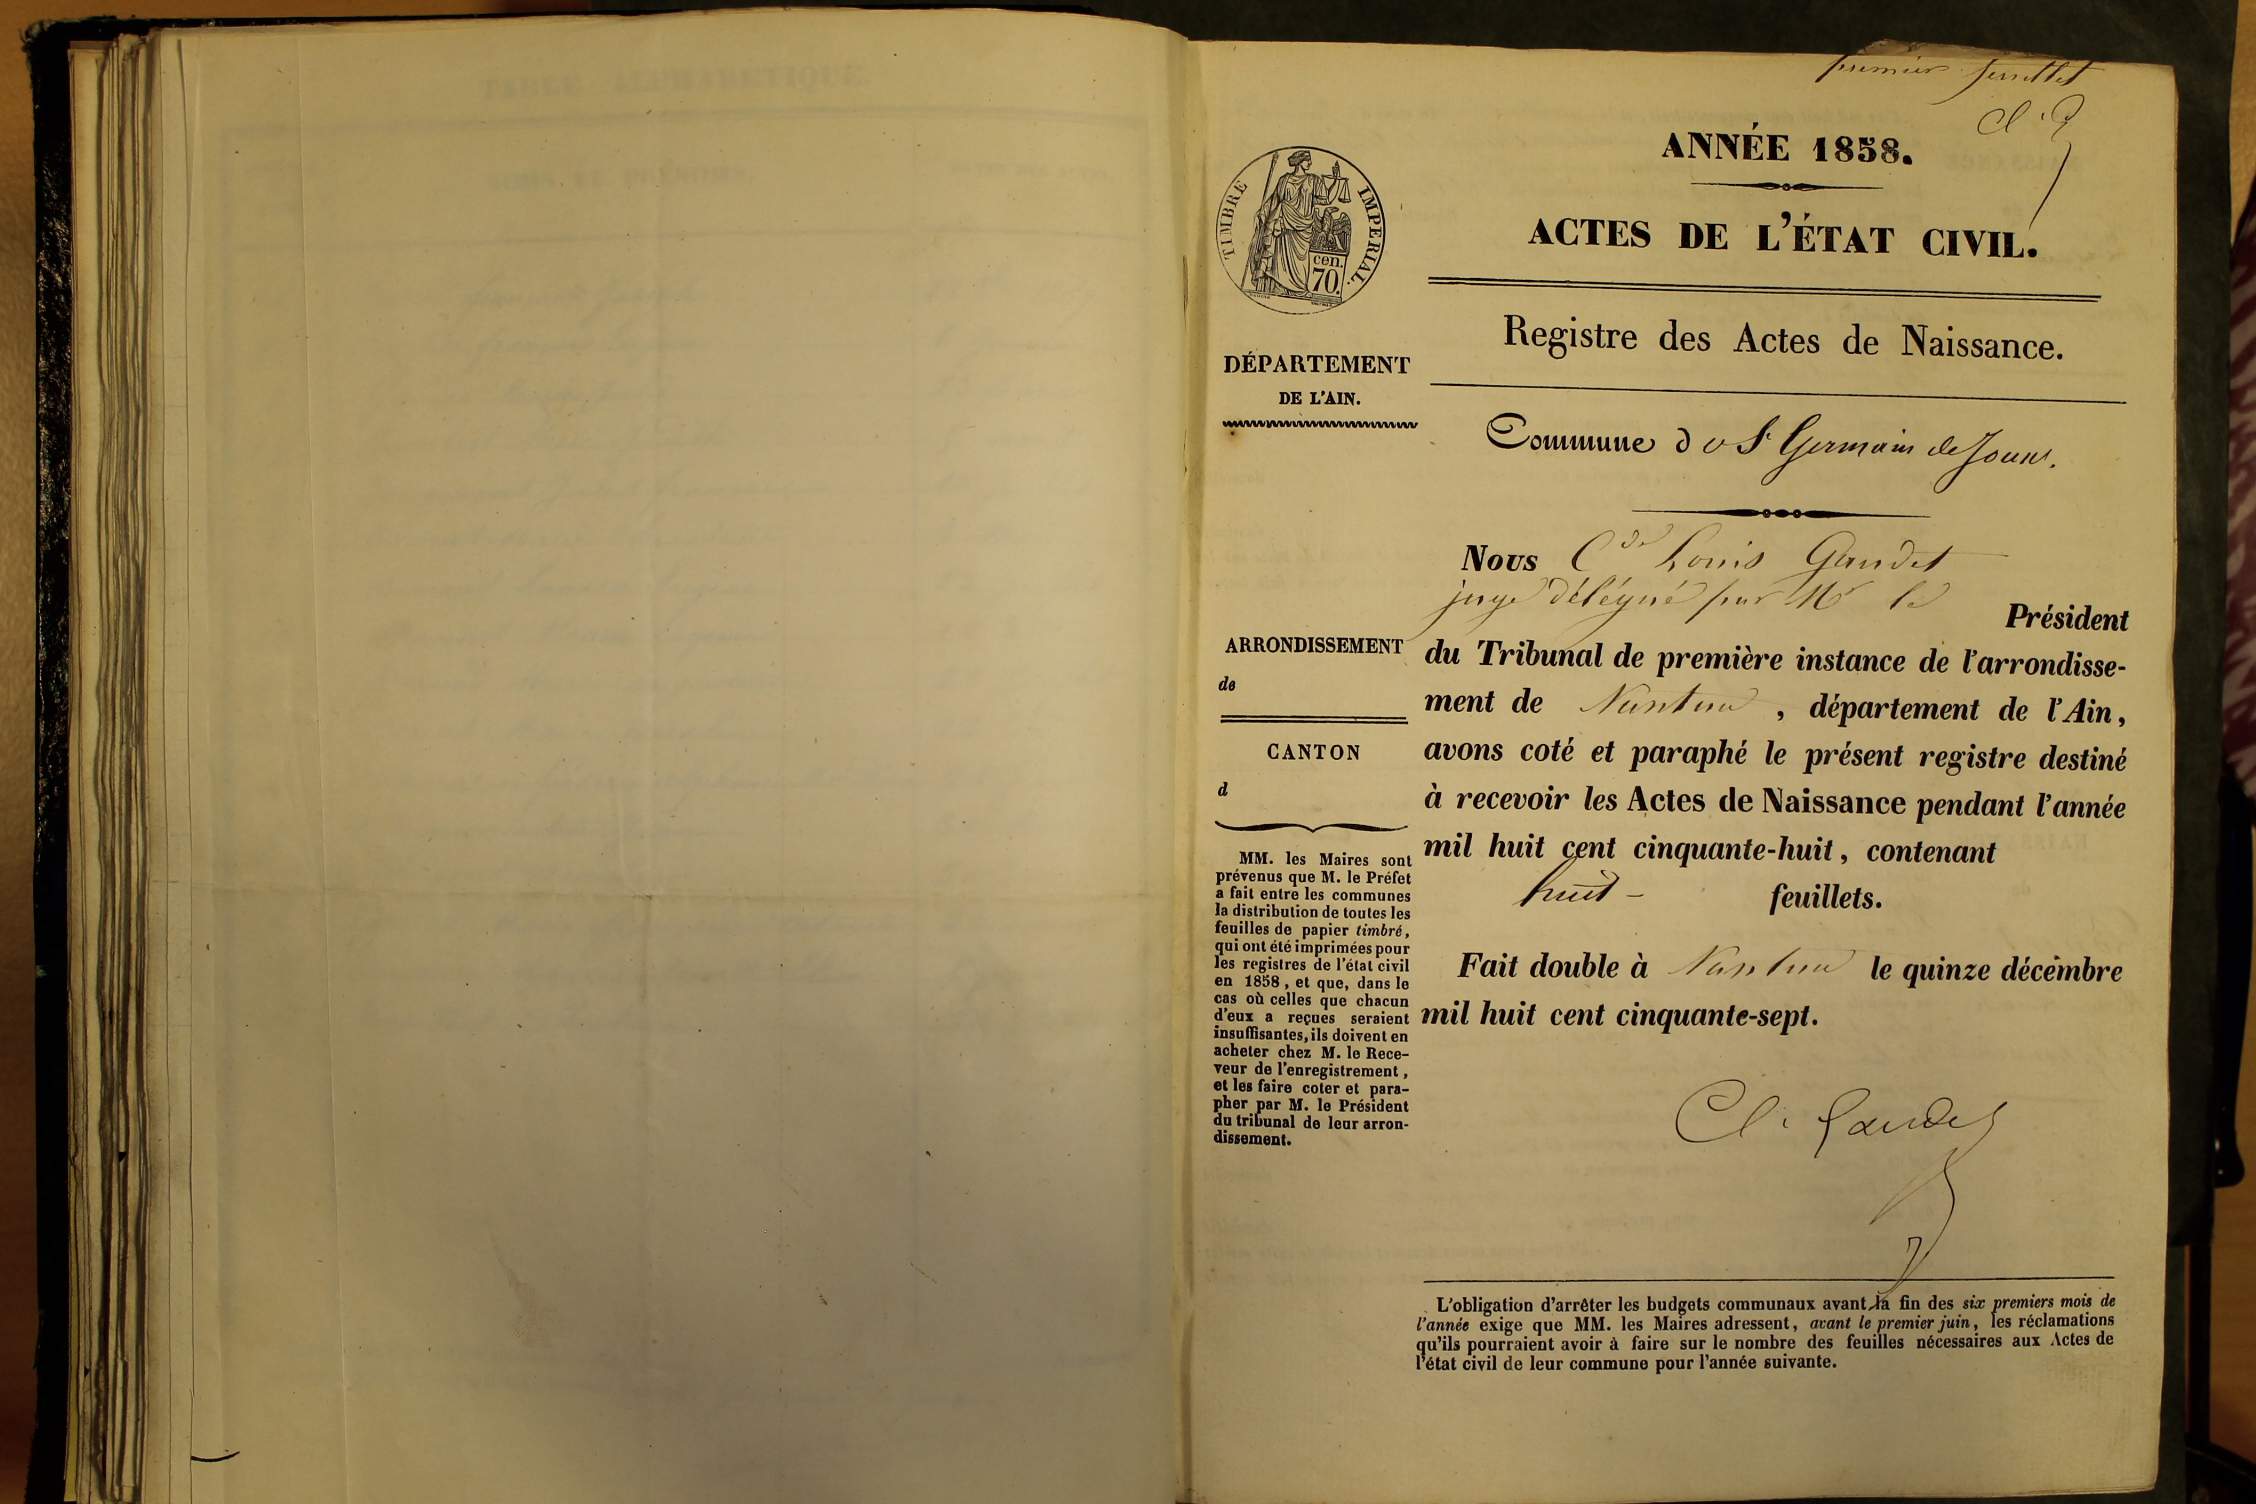 TABLE ALPHABÉTIQUE.
premier feuillet
ANNÉE 1858.
ACTES DE L'ÉTAT CIVIL.
TIMBRE IMPERIAL.
cen.
70.
Registre des Actes de Naissance.
DÉPARTEMENT
DE L'AIN.
Commune d e St Germain de Joux.
Nous Cde Louis Gaudet
juge délégué par Mr le
Président
ARRONDISSEMENT
de
CANTON
d
du Tribunal de première instance de l'arrondisse-
ment de Nantua, département de l'Ain,
avons coté et paraphé le présent registre destiné
à recevoir les Actes de Naissance pendant l'année
mil huit cent cinquante-huit, contenant
huit - feuillets.
Fait double à Nantua le quinze décembre
mil huit cent cinquante-sept.
MM. les Maires sont
prévenus que M. le Préfet
a fait entre les communes
la distribution de toutes les
feuilles de papier timbré,
qui ont été imprimées pour
les registres de l'état civil
en 1858, et que, dans le
cas où celles que chacun
d'eux a reçues seraient
insuffisantes, ils doivent en
acheter chez M. le Rece-
veur de l'enregistrement,
et les faire coter et para-
pher par M. le Président
du tribunal de leur arron-
dissement.
Cl. Gaudet
L'obligation d'arrêter les budgets communaux avant la fin des six premiers mois de
l'année exige que MM. les Maires adressent, avant le premier juin, les réclamations
qu'ils pourraient avoir à faire sur le nombre des feuilles nécessaires aux Actes de
l'état civil de leur commune pour l'année suivante.